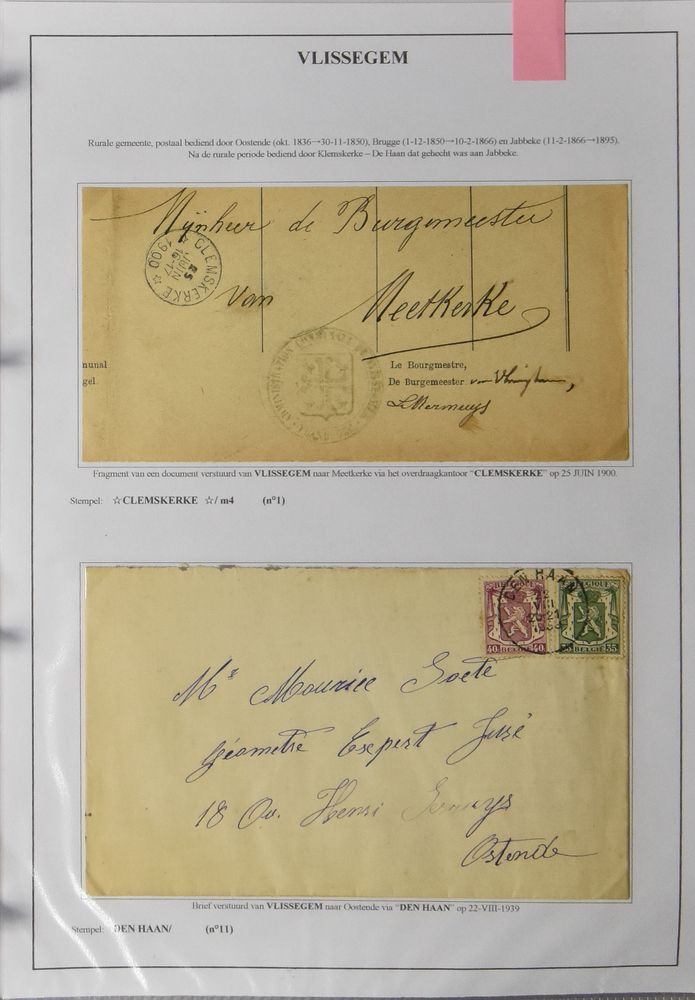 VLISSEGEM
Rurale gemeente, postaal bediend door Oostende (okt. 1836→30-11-1850), Brugge (1-12-1850→10-2-1866) en Jabbeke (11-2-1866→1895).
Na de rurale periode bediend door Klemskerke – De Haan dat gehecht was aan Jabbeke.
Mijnheer de Burgemeester
CLEMSKERKE
25
JUIN
16-17
1900
van Meetkerke
ADMINISTRATION COMMUNALE
munal
gel.
Le Bourgmestre,
De Burgemeester van
Fragment van een document verstuurd van VLISSEGEM naar Meetkerke via het overdraagkantoor "CLEMSKERKE" op 25 JUIN 1900.
Stempel: ☆CLEMSKERKE ☆/ m4 (n°1)
BELGIQUE
40 40
BELGIE
BELGIQUE
35 35
BELGIE
DEN HAAN
22
VIII
20-21
1939
Mr Maurice Goeté
Géometre Expert Juré
18 Av. Henri
Ostende
Brief verstuurd van VLISSEGEM naar Oostende via "DEN HAAN" op 22-VIII-1939
Stempel: DEN HAAN/ (n°11)